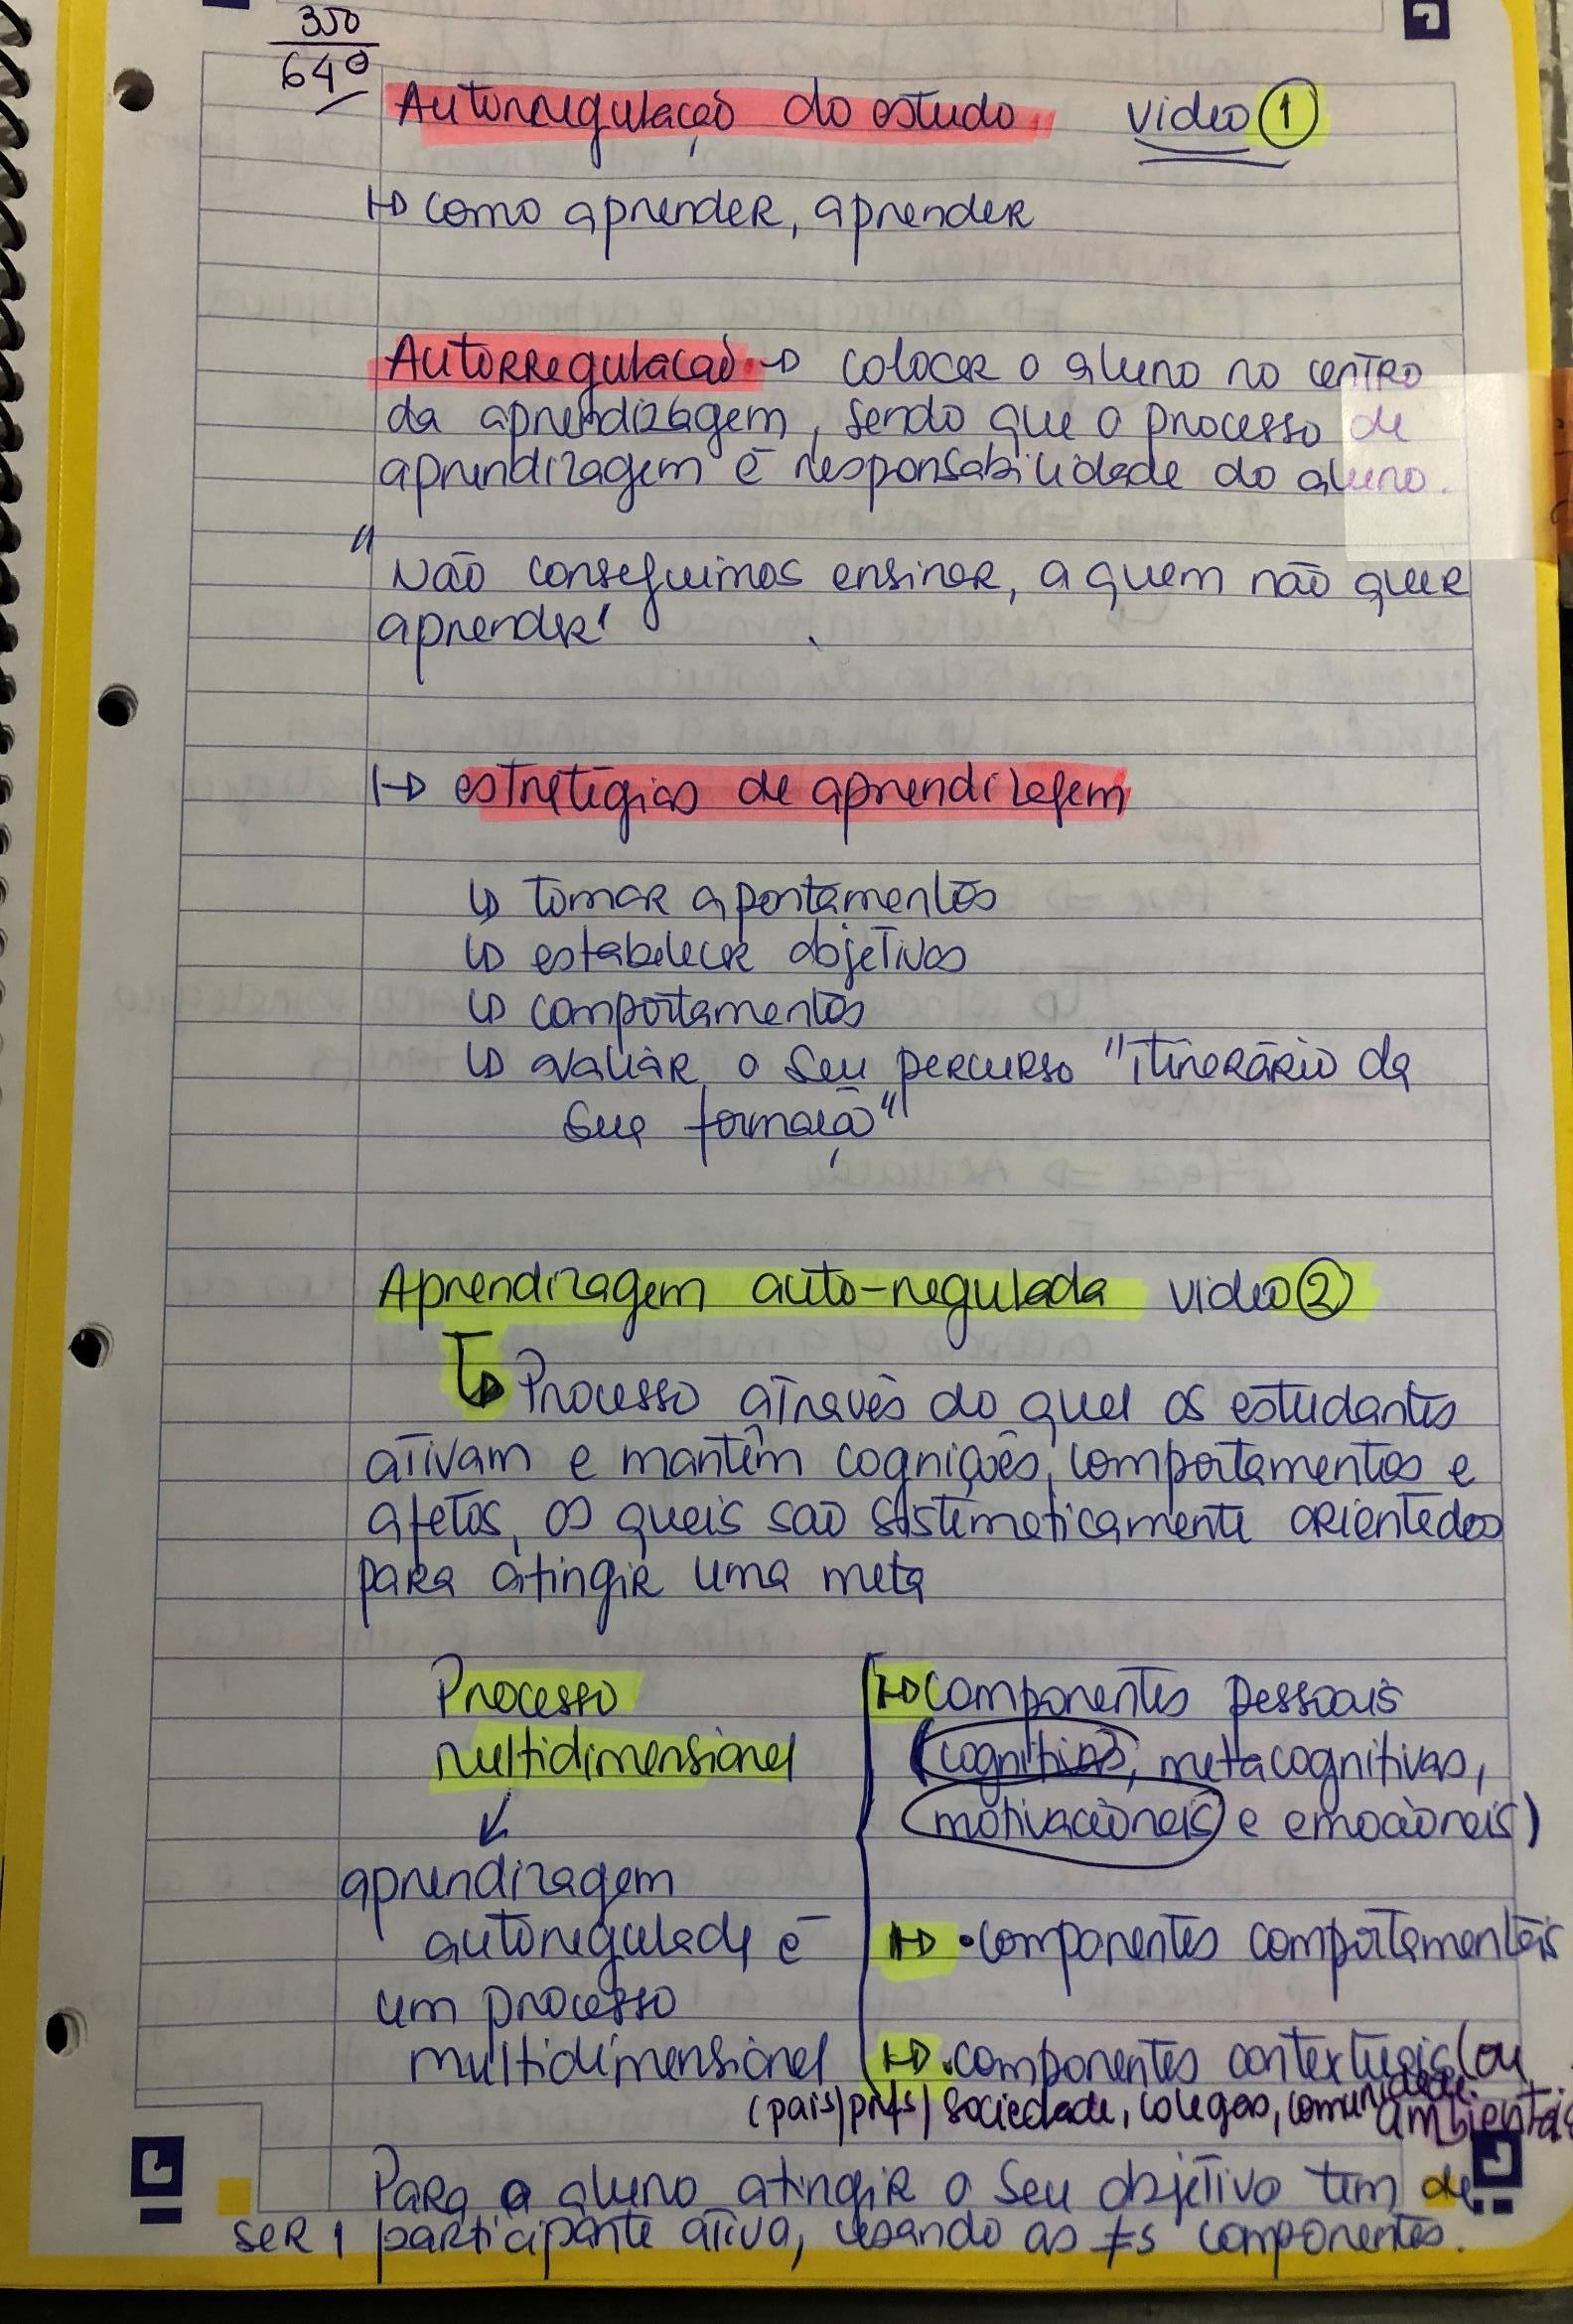 350
640
Autorregulação do estudo video 1
↦ como aprender, aprender
Autorregulação → colocar o aluno no centro
da aprendizagem, sendo que o processo de
aprendizagem é responsabilidade do aluno.
"Não conseguimos ensinar, a quem não quer
aprender"
↦ estratégias de aprendizagem
↳ tomar apontamentos
↳ estabelecer objetivos
↳ comportamentos
↳ avaliar o seu percurso "itinerário da
sua formação"
Aprendizagem auto-regulada video 2
↳ Processo através do qual os estudantes
ativam e mantêm cognições, comportamentos e
afetos, os quais são sistematicamente orientados
para atingir uma meta
Processo
multidimensional
↙
aprendizagem
autoregulada é
um processo
multidimensional
↦ componentes pessoais
(cognitivas, metacognitivas,
motivacionais e emocionais)
↦ • componentes comportamentais
↦ • componentes contextuais (ou
ambientais
(pais/profs/ sociedade, colegas, comunidade.
Para o aluno atingir o seu objetivo tem de
ser 1 participante ativa, usando as ≠s componentes.